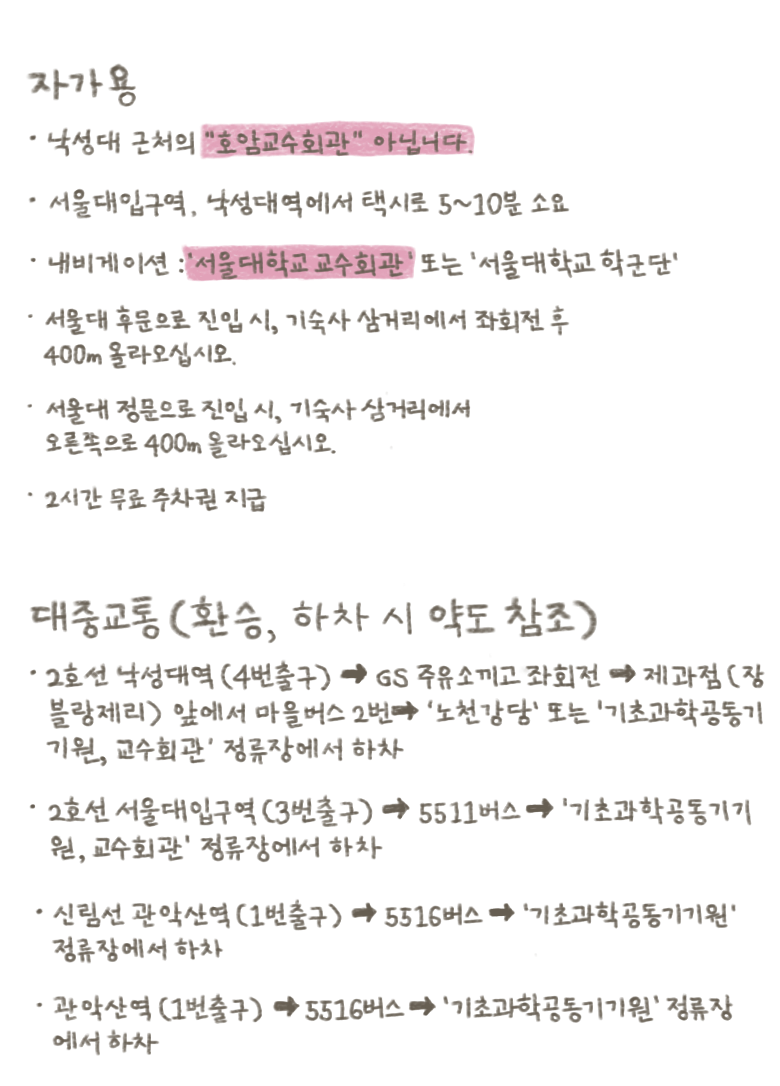 자가용
· 낙성대 근처의 "호암교수회관" 아닙니다.
· 서울대입구역, 낙성대역에서 택시로 5~10분 소요
· 내비게이션 : '서울대학교 교수회관' 또는 '서울대학교 학군단'
· 서울대 후문으로 진입 시, 기숙사 삼거리에서 좌회전 후
400m 올라오십시오.
· 서울대 정문으로 진입 시, 기숙사 삼거리에서
오른쪽으로 400m 올라오십시오.
· 2시간 무료 주차권 지급
대중교통 (환승, 하차 시 약도 참조)
· 2호선 낙성대역 (4번출구) ➡ GS 주유소끼고 좌회전 ➡ 제과점 (장
블랑제리) 앞에서 마을버스 2번➡ '노천강당' 또는 '기초과학공동기
기원, 교수회관' 정류장에서 하차
· 2호선 서울대입구역 (3번출구) ➡ 5511버스 ➡ '기초과학공동기기
원, 교수회관' 정류장에서 하차
· 신림선 관악산역 (1번출구) ➡ 5516버스 ➡ '기초과학공동기기원'
정류장에서 하차
· 관악산역 (1번출구) ➡ 5516버스 ➡ '기초과학공동기기원' 정류장
에서 하차